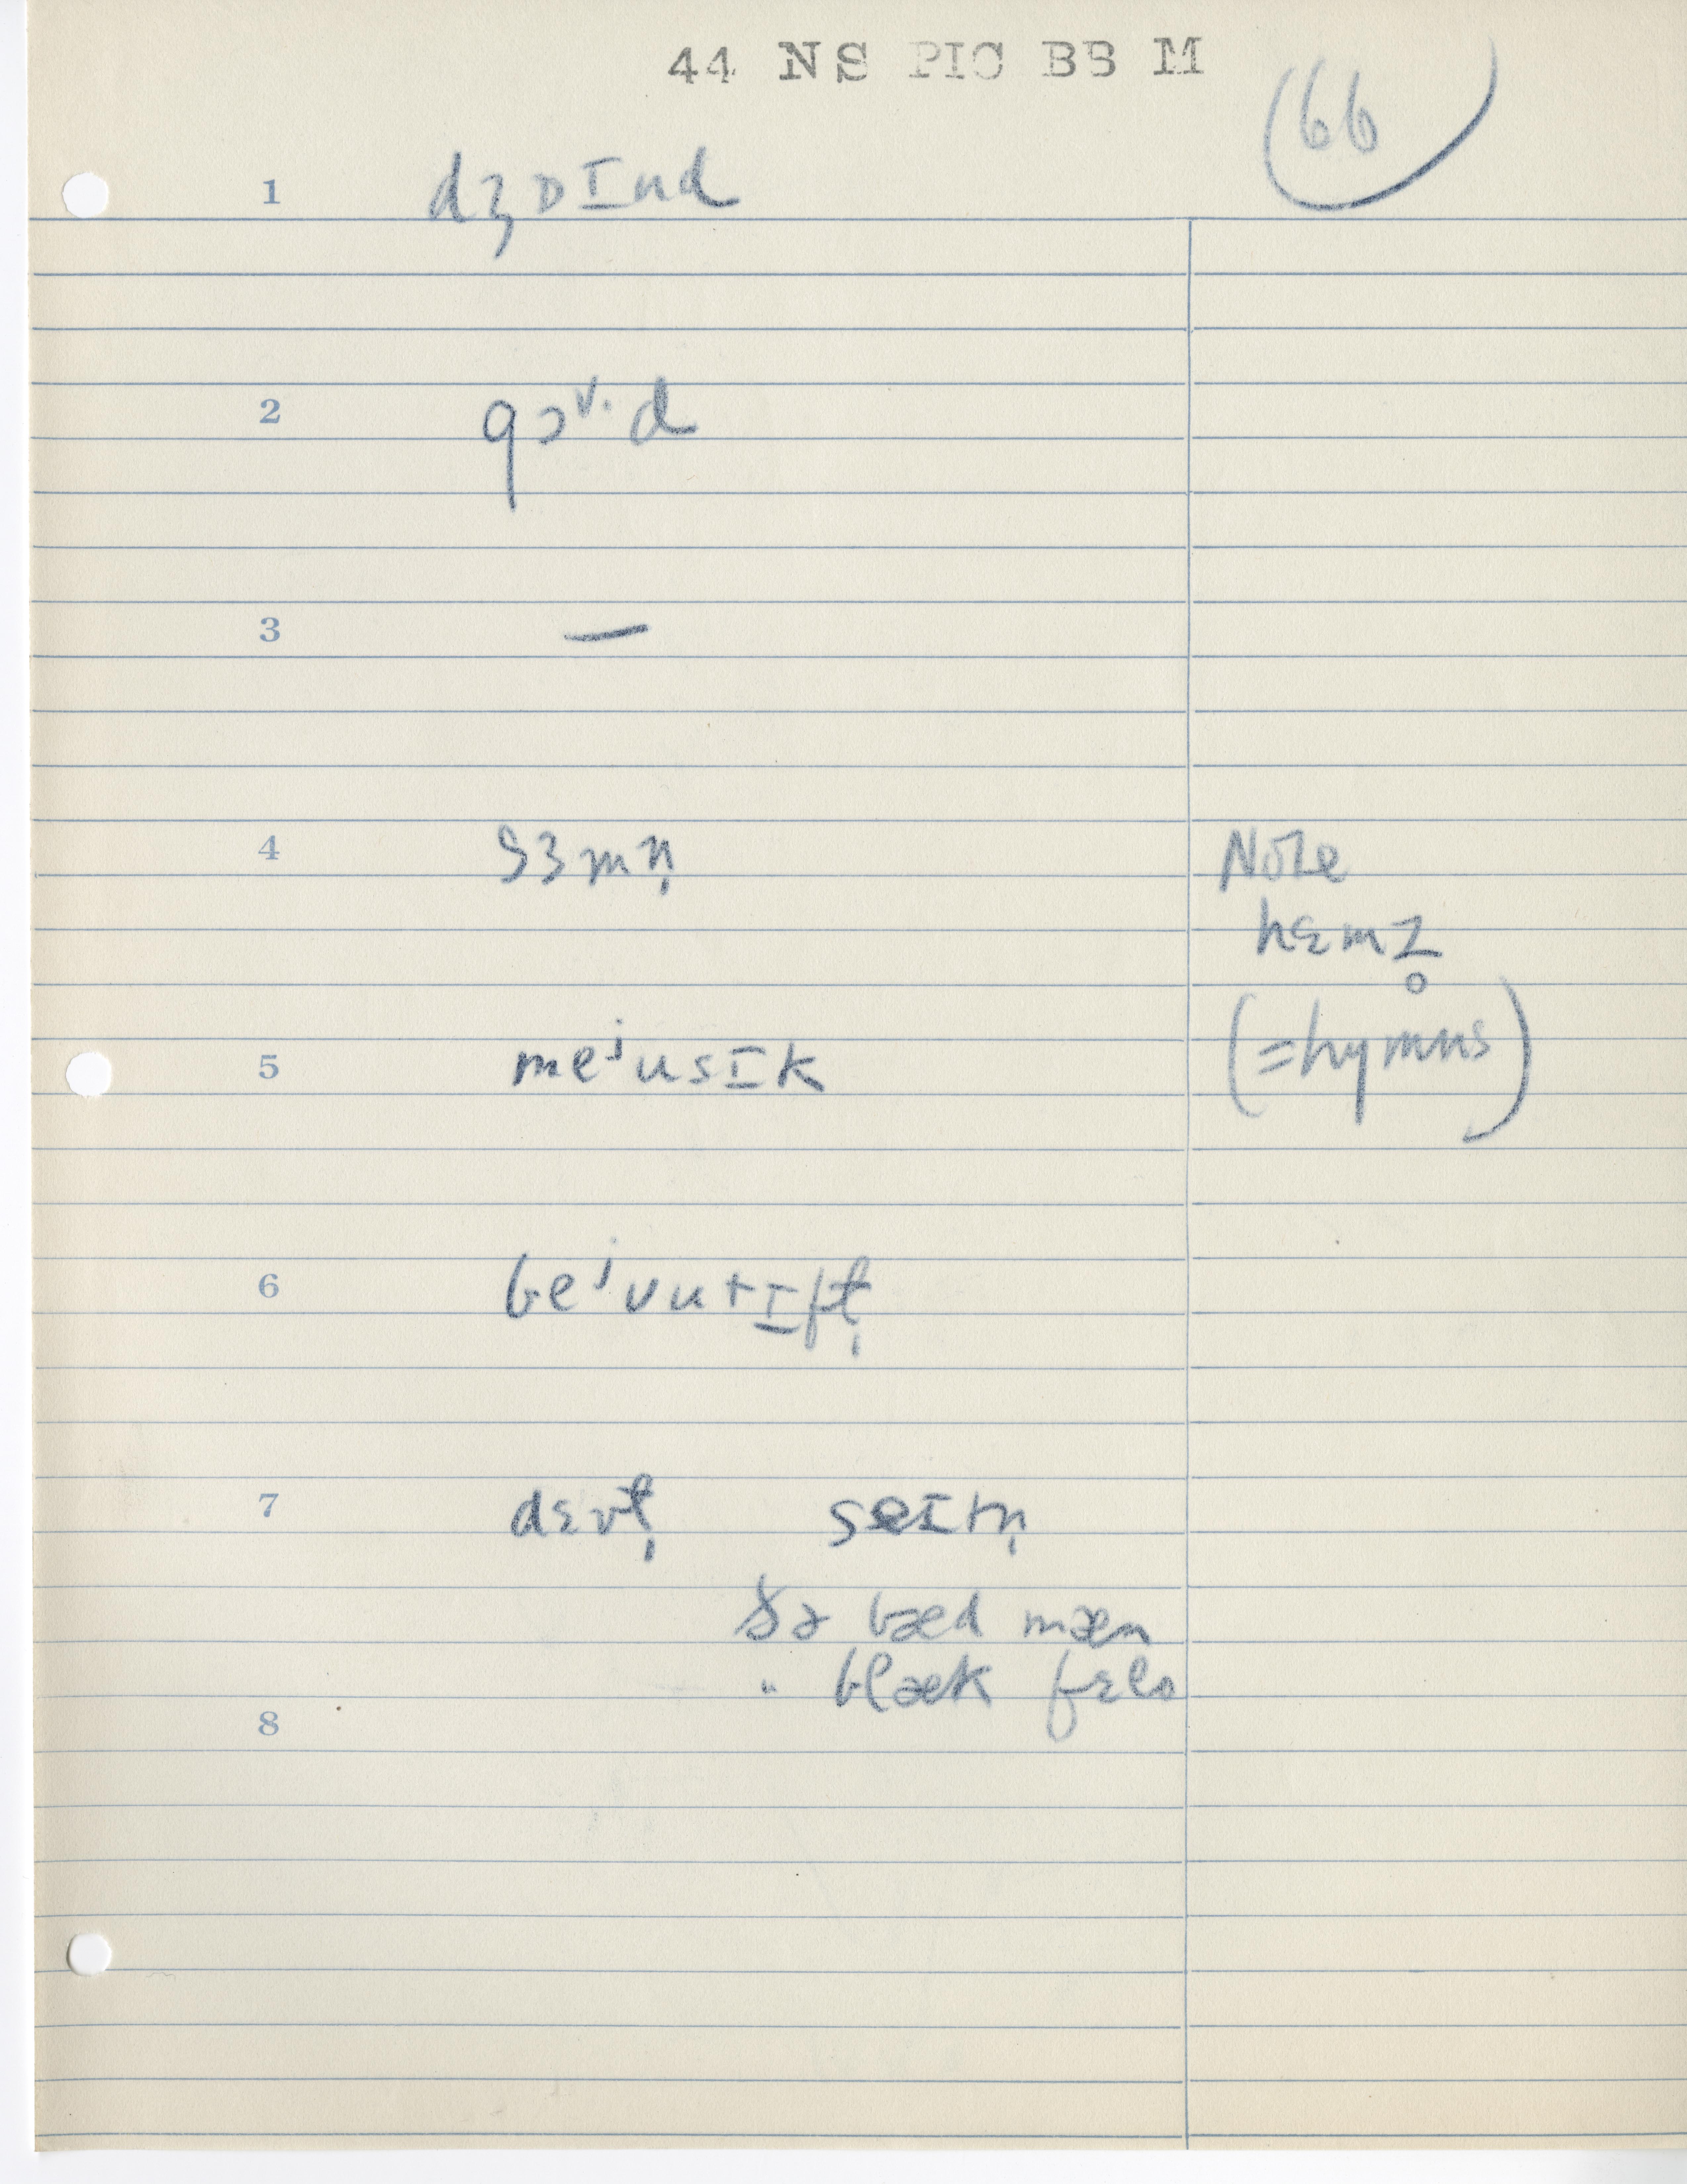 44 NS PIC BB M
66
1 dʒɒɪnd
2 gɔᵛ·d
3 —
4 sɜmn̩
Note
hɛmz̥
(=hymns)
5 meʲusɪk
6 beʲʊutɪfl̩
7 dɛvl̩ seɪtn̩
ðə bæd mæn
" blæk fɛlo
8